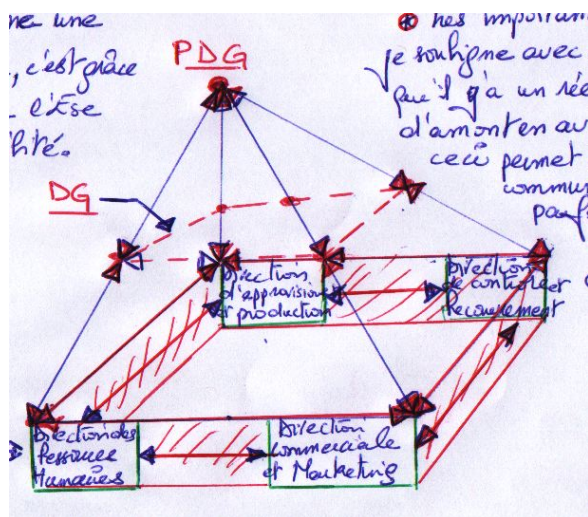 une
, c'est grâce
l'Ese
PDG
très important
je souligne avec
qu'il y'a un rée
d'amont en av
ceci permet
commun
parf
DG
Direction
d'approvision
et production
Direction
de contrôle
et recouvrement
Direction des
Ressource
Humaines
Direction
commerciale
et Marketing